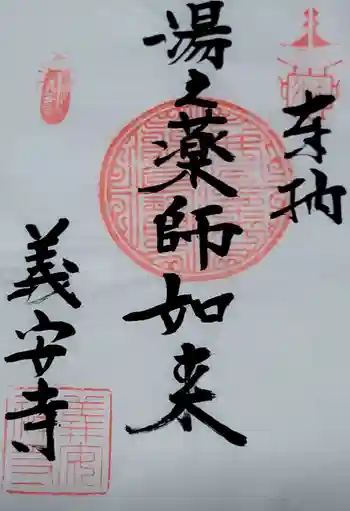 奉納
湯之薬師如来
義安寺